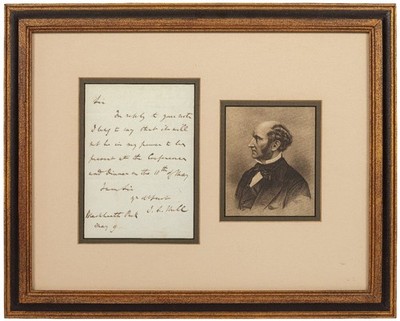 Sir
In reply to your note
I beg to say that it will
not be in my power to be
present at the Conference
and Dinner on the 11th of May
I am Sir
yr obt Sert
J. S. Mill
Blackheath Park
May 9